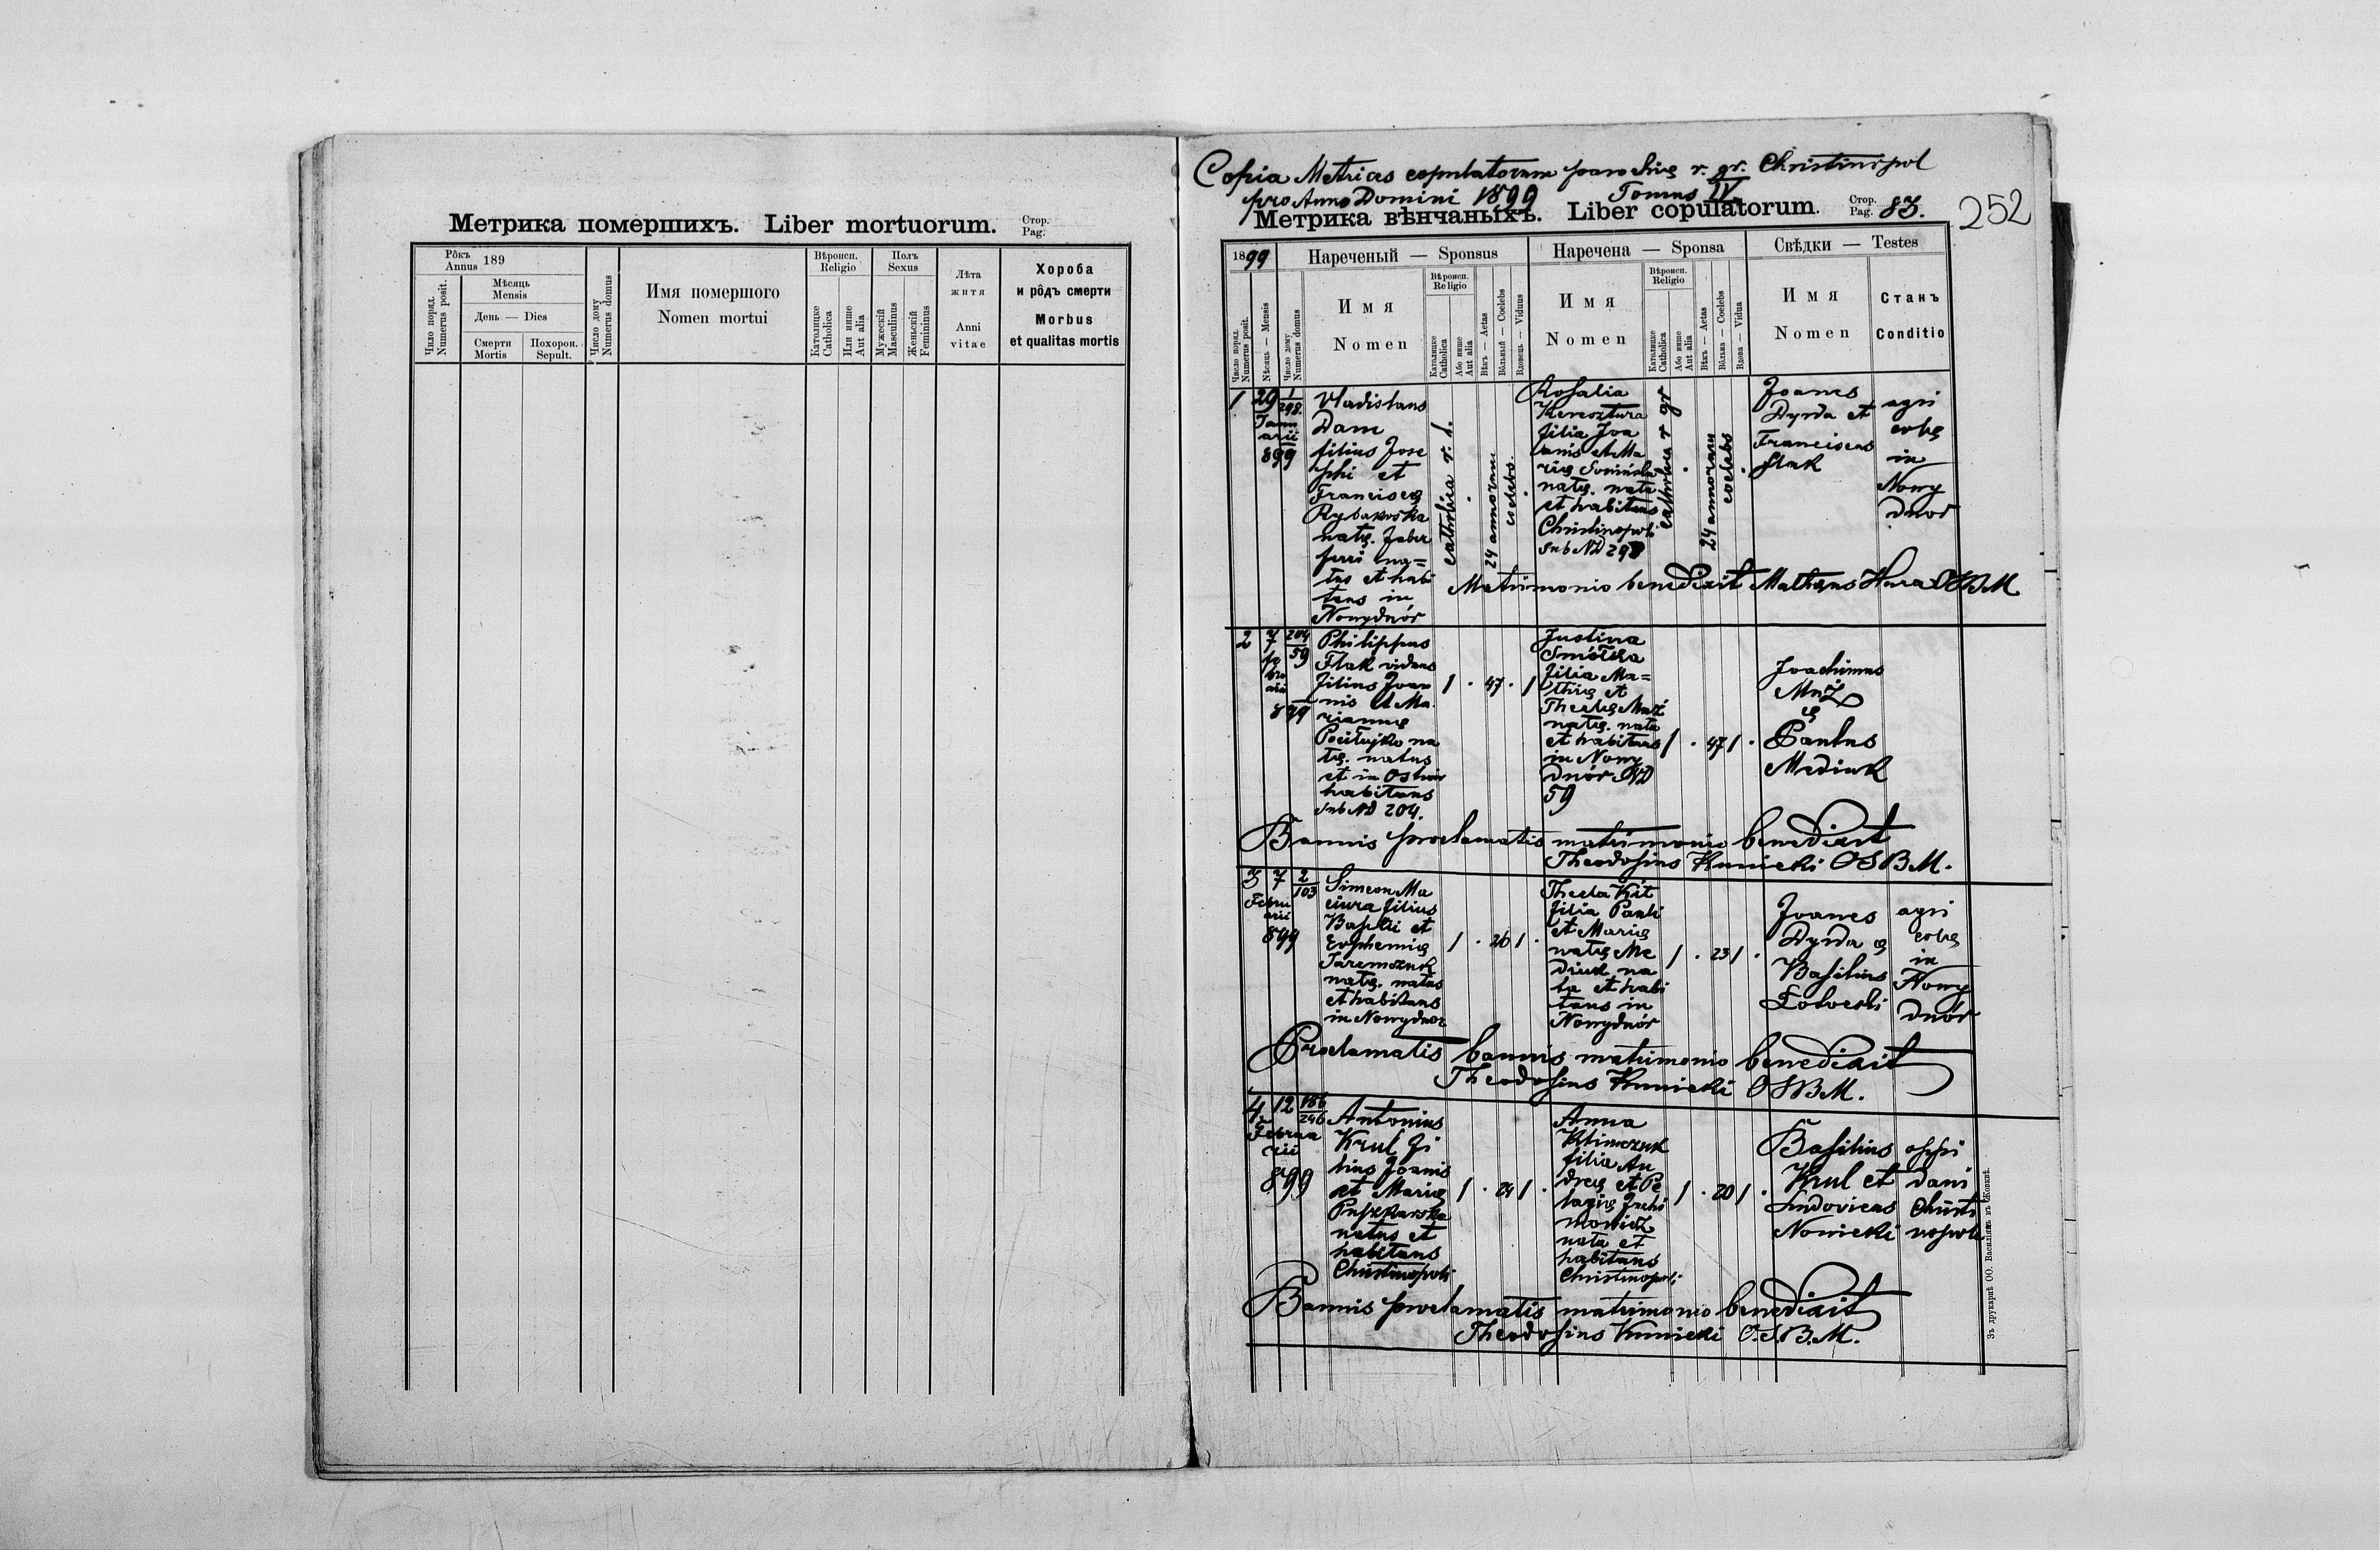 Метрика помершихъ. Liber mortuorum.
Стор.
Pag.
Рôкъ
Annus 189
Число поряд.
Numerus posit.
Мѣсяць
Mensis
День — Dies
Смерти
Mortis
Похорон.
Sepult.
Число дому
Numerus domus
Имя помершого
Nomen mortui
Вѣроисп.
Religio
Католицке
Catholica
Или нише
Aut alia
Полъ
Sexus
Мужескій
Masculinus
Женьскій
Femininus
Лѣта
житя
Anni
vitae
Хороба
и рôдъ смерти
Morbus
et qualitas mortis
Copia Metrices copulatorum parochię r. gr. Christinopol
pro Anno Domini 1899 Tomus IV
Метрика вѣнчаныхъ. Liber copulatorum.
Стор.
Pag. 83.
252
1899
Число поряд.
Numerus posit.
Мѣсяць — Mensis
Число дому
Numerus domus
Нареченый — Sponsus
Имя
Nomen
Вѣроисп.
Religio
Католицке
Catholica
Або нише
Aut alia
Вѣкъ — Aetas
Вôльный — Coelebs
Вдовець — Viduus
Наречена — Sponsa
Имя
Nomen
Вѣроисп.
Religio
Католицке
Catholica
Або нише
Aut alia
Вѣкъ — Aetas
Вôльна — Coelebs
Вдова — Vidua
Свѣдки — Testes
Имя
Nomen
Станъ
Conditio
1
29
Janu
arii
899
1
298.
Vladislaus
Dam
filius Jose
phi et
Franciscę
Rybakoska
natę. faber
ferri na=
tus et habi
tans in
Nowydwór
catholica r. l.
24 annorum
coelebs.
Rosalia
Keresztura
filia Joa
nnis et Ma
rię
natę. nata
et habitans
Christinopoli
sub ND 298
catholica r gr
24 annorum
coelebs
Joanes
Dyrda et
Franciscus
Flak
agri
colę
in
Nowy
dwór
Matrimonio benedixit Matheus Hura OSBM
2
7
fe
bru
arii
899
204
59
Philippus
Flak viduus
filius Joan
nis et Ma
riannę
natę. natus
et in Ostrów
habitans
sub ND 204.
1 . 47 . 1
Justina
filia Ma=
thię et
Theclę Muż
natę. nata
et habitans
in Nowy
dwór ND
59
1 . 47 1 .
Joachimus
Muż
ę
Paulus
Mediuk
Bannis proclamatis matrimonio benedixit
Theodosius Kunicki OSBM.
3
7
Febru
arii
899
2
103
Simeon Ma
ciura filius
Basilii et
Euphemię
Jaremczuk
natę. natus
et habitans
in Nowydwor
1 . 26 1 .
Thecla Kit
filia Pauli
et Marię
natę Me
diuk na
ta et habi
tans in
Nowydwór
1 . 23 1 .
Joanes
Dyrda ę
Basilius
agri
colę
in
Nowy
dwór
Proclamatis bannis matrimonio benedixit
Theodosius Kunicki OSBM.
4
12
Februa
rii
899
186
246
Antonius
Krul fi
lius Joanis
et Marię
Puszkarska
natus et
habitans
Christinopoli
1 . 24 1 .
Anna
Klimczuk
filia An
dreę et Pe
lagię Jachi
mowicz
nata et
habitans
Christinopoli
1 . 20 1 .
Basilius
Krul et
Ludovicus
Nowicki
oppi
dani
Christi
nopoli
Bannis proclamatis matrimonio benedixit
Theodosius Kunicki O.S.B.M.
Зъ друкарнѣ ОО. Василіянъ въ Жовквѣ.